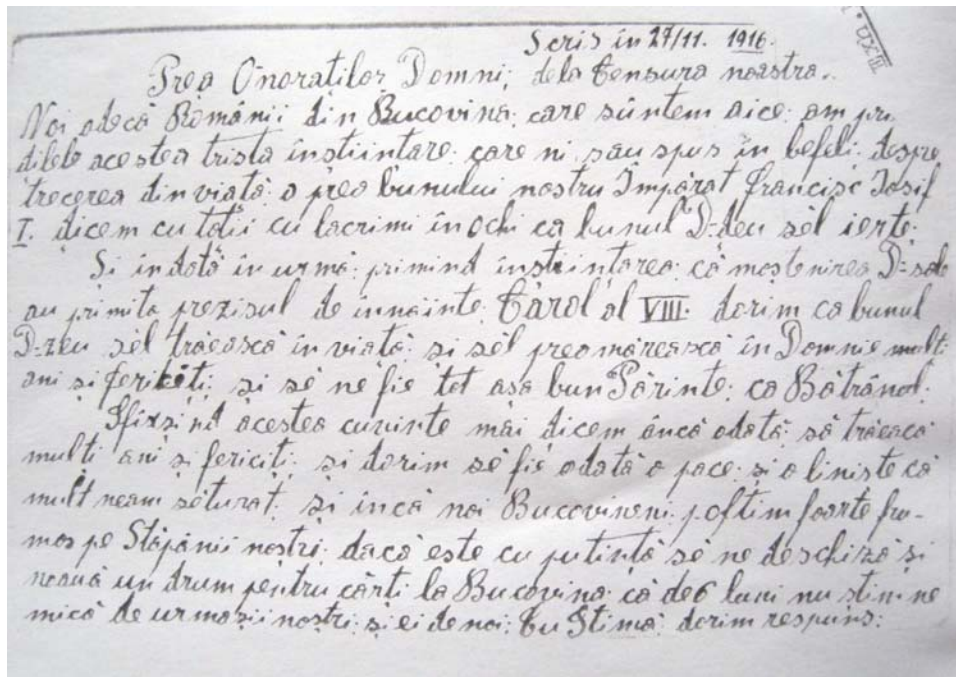 Scris în 27/11. 1916.
Prea Onoraților Domni; dela Censura noastra.
Noi adecă Românii din Bucovina; care sûntem aice; am pri
dilele acestea trista înstiintare; care ni sau spus în befeli; despre
trecerea din viată; a prea bunului nostru Împărat Francisc Iosif
I. dicem cu totii cu lacrimi în ochi ca bunul D-deu sěl ierte;
Si îndată în urmă; primind înstiintarea; că mostenirea D=sale
au primito prezisul de înnainte; Carol al VIII. dorim ca bunul
D-zeu sěl trăească în viată; si sěl preamărească în Domnie multi
ani si fericiti; si sě ne fie tot asa bun Părinte; ca Bătrânul;
Sfîrsind acestea cuvinte mai dicem âncă odată; să trăeacă
multi ani si fericiti; si dorim sě fie odată o pace; si o liniste că
mult neam sěturat; si încă noi Bucovineni; poftim foarte fru-
mos pe Stăpânii nostri; dacă este cu putintă sě ne deschiză si
nouă un drum pentru cărti la Bucovina; că de 6 luni nu stim ne
mică de urmasii nostri; si ei de noi; Cu Stimă; dorim respuns;